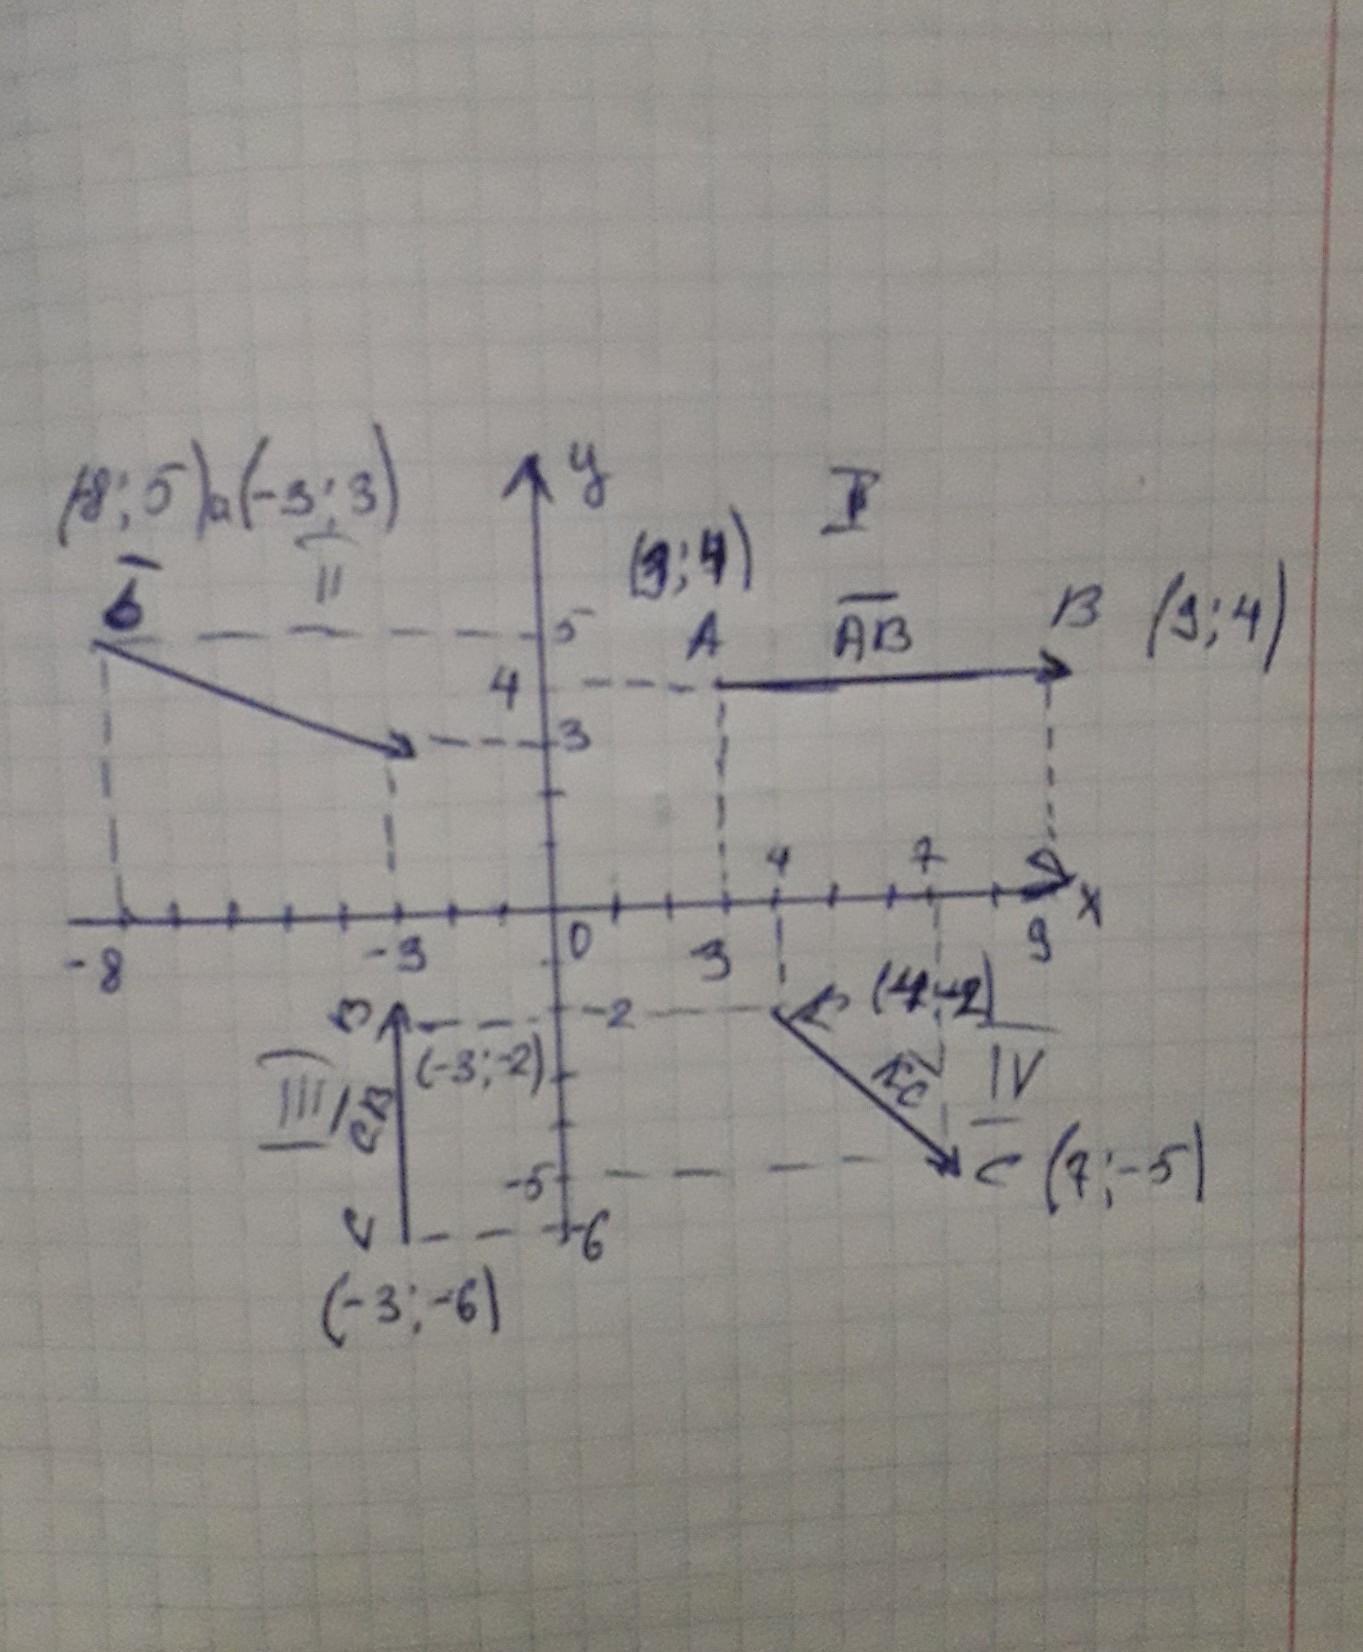 (-8; 5) a(-3; 3)
y
I
II
(3; 4)
б
5
A
AB
B (9; 4)
4
3
4
7
x
-8
-3
0
3
9
B
-2
(4; -2)
(-3; -2)
III
CB
IV
-5
C (7; -5)
C
-6
(-3; -6)